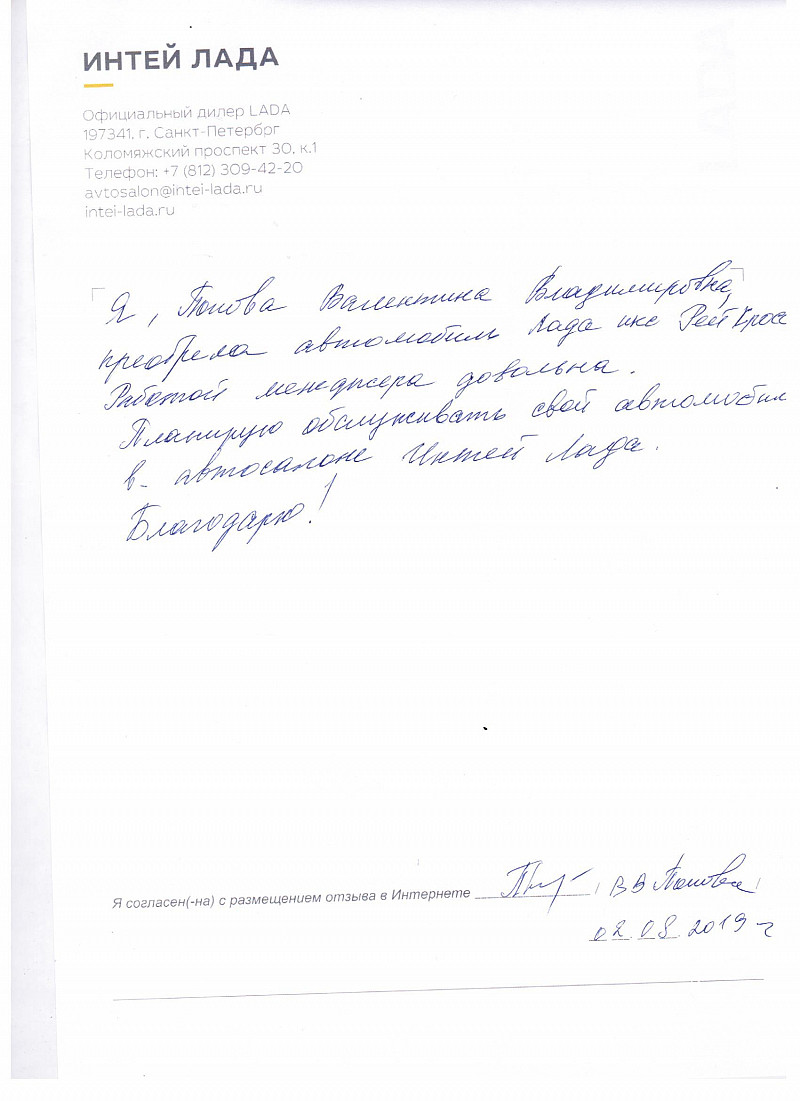 ИНТЕЙ ЛАДА
Официальный дилер LADA
197341, г. Санкт-Петербрг
Коломяжский проспект 30, к.1
Телефон: +7 (812) 309-42-20
avtosalon@intei-lada.ru
intei-lada.ru
Я, Попова Валентина Владимировна,
преобрела автомобиль Лада икс Рей Кросс
Работой менеджера довольна.
Планирую обслуживать свой автомобиль
в автосалоне Интей Лада.
Благодарю!
Я согласен(-на) с размещением отзыва в Интернете / В В Попова /
02.08.2019 г